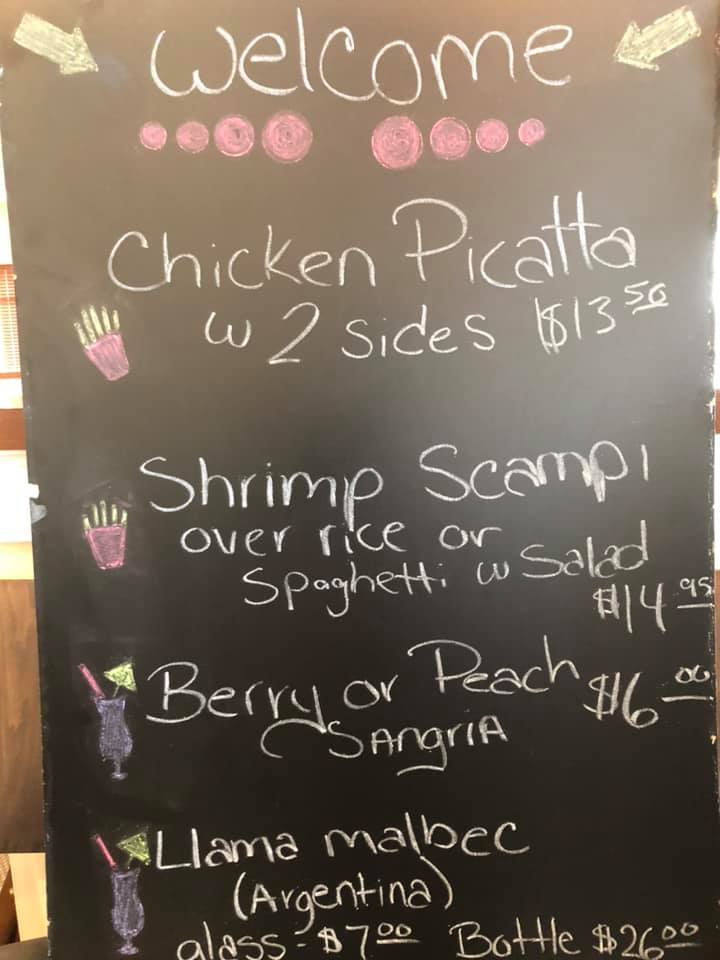 Welcome
Chicken Picatta
w 2 sides $13 50
Shrimp Scampi
over rice or
Spaghetti w Salad
$14 95
Berry or Peach $6 00
SAngriA
Llama malbec
(Argentina)
glass - $7 00 Bottle $26 00